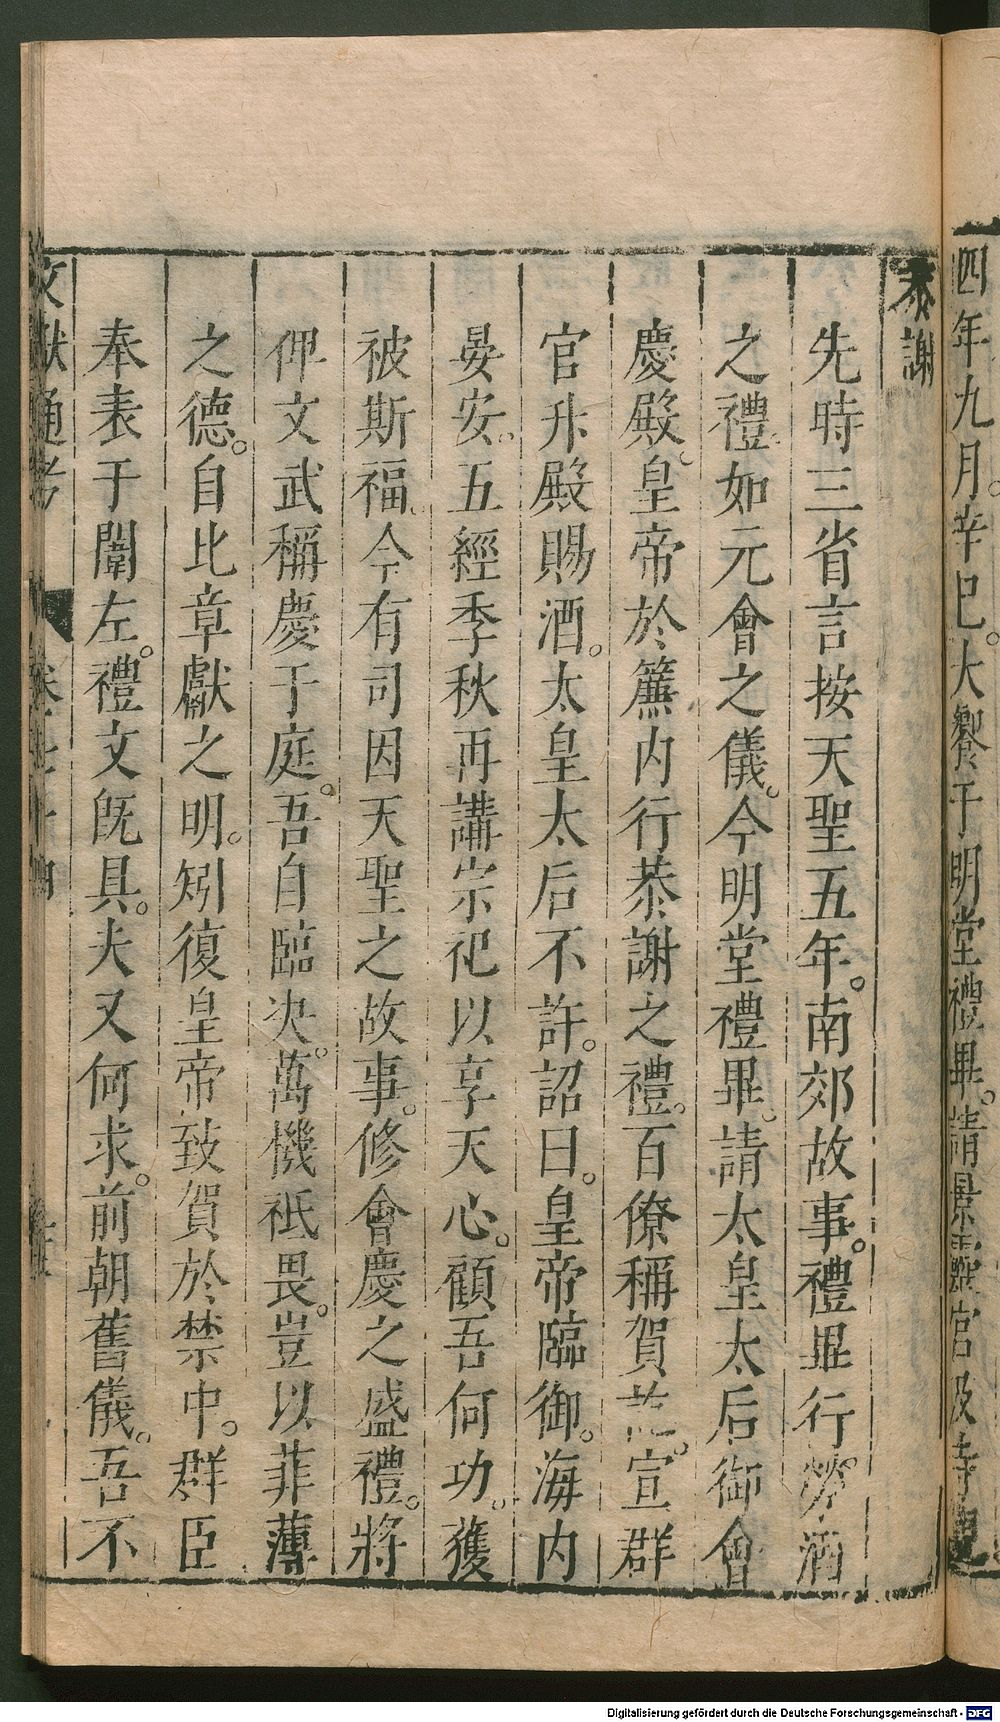 四年九月辛巳。大饗于明堂禮畢。請景靈宮及寺觀
恭謝
先時三省言按天聖五年。南郊故事。禮畢行勞酒
之禮。如元會之儀。今明堂禮畢。請太皇太后御會
慶殿。皇帝於簾内行恭謝之禮。百僚稱賀訖。宣群
官升殿賜酒。太皇太后不許。詔曰。皇帝臨御。海内
晏安。五經季秋再講宗祀以享天心。顧吾何功。獲
被斯福。今有司因天聖之故事。修會慶之盛禮。將
俾文武稱慶于庭。吾自臨決。萬機祗畏。豈以菲薄
之德。自比章獻之明。矧復皇帝致賀於禁中。群臣
奉表于闈左。禮文旣具。夫又何求。前朝舊儀。吾不
文獻通考 卷七十四